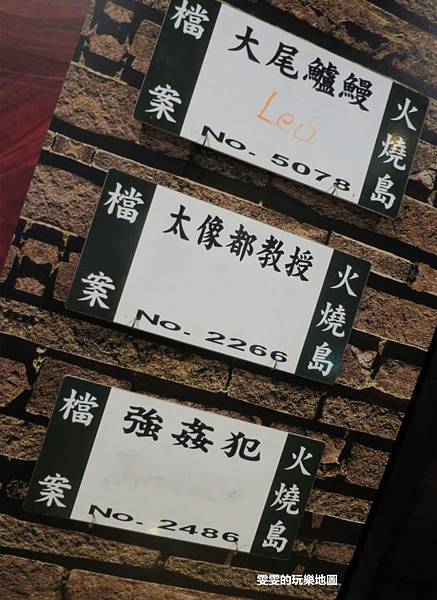 檔案
大尾鱸鰻
Leo
No. 5078
火燒島
檔案
太像都教授
No. 2266
火燒島
檔案
強姦犯
No. 2486
火燒島
雯雯的玩樂地圖